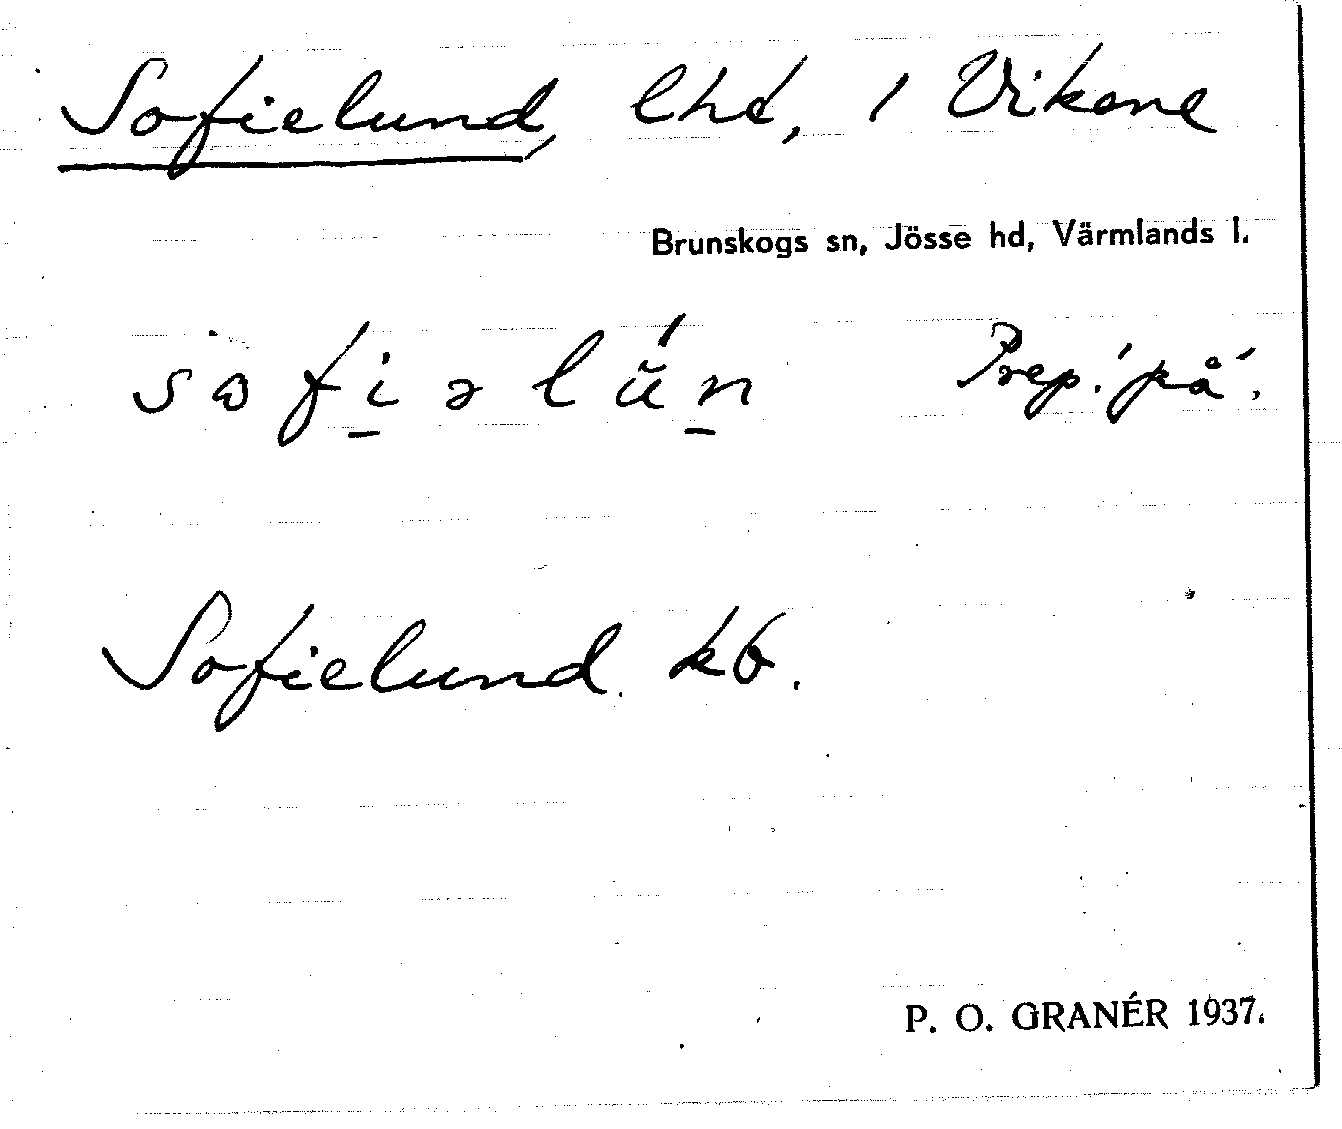 Sofielund, lht, / Vikene
Brunskogs sn, Jösse hd, Värmlands l.
sofiəlún Prep. 'på'.
Sofielund kb.
P. O. GRANÉR 1937.